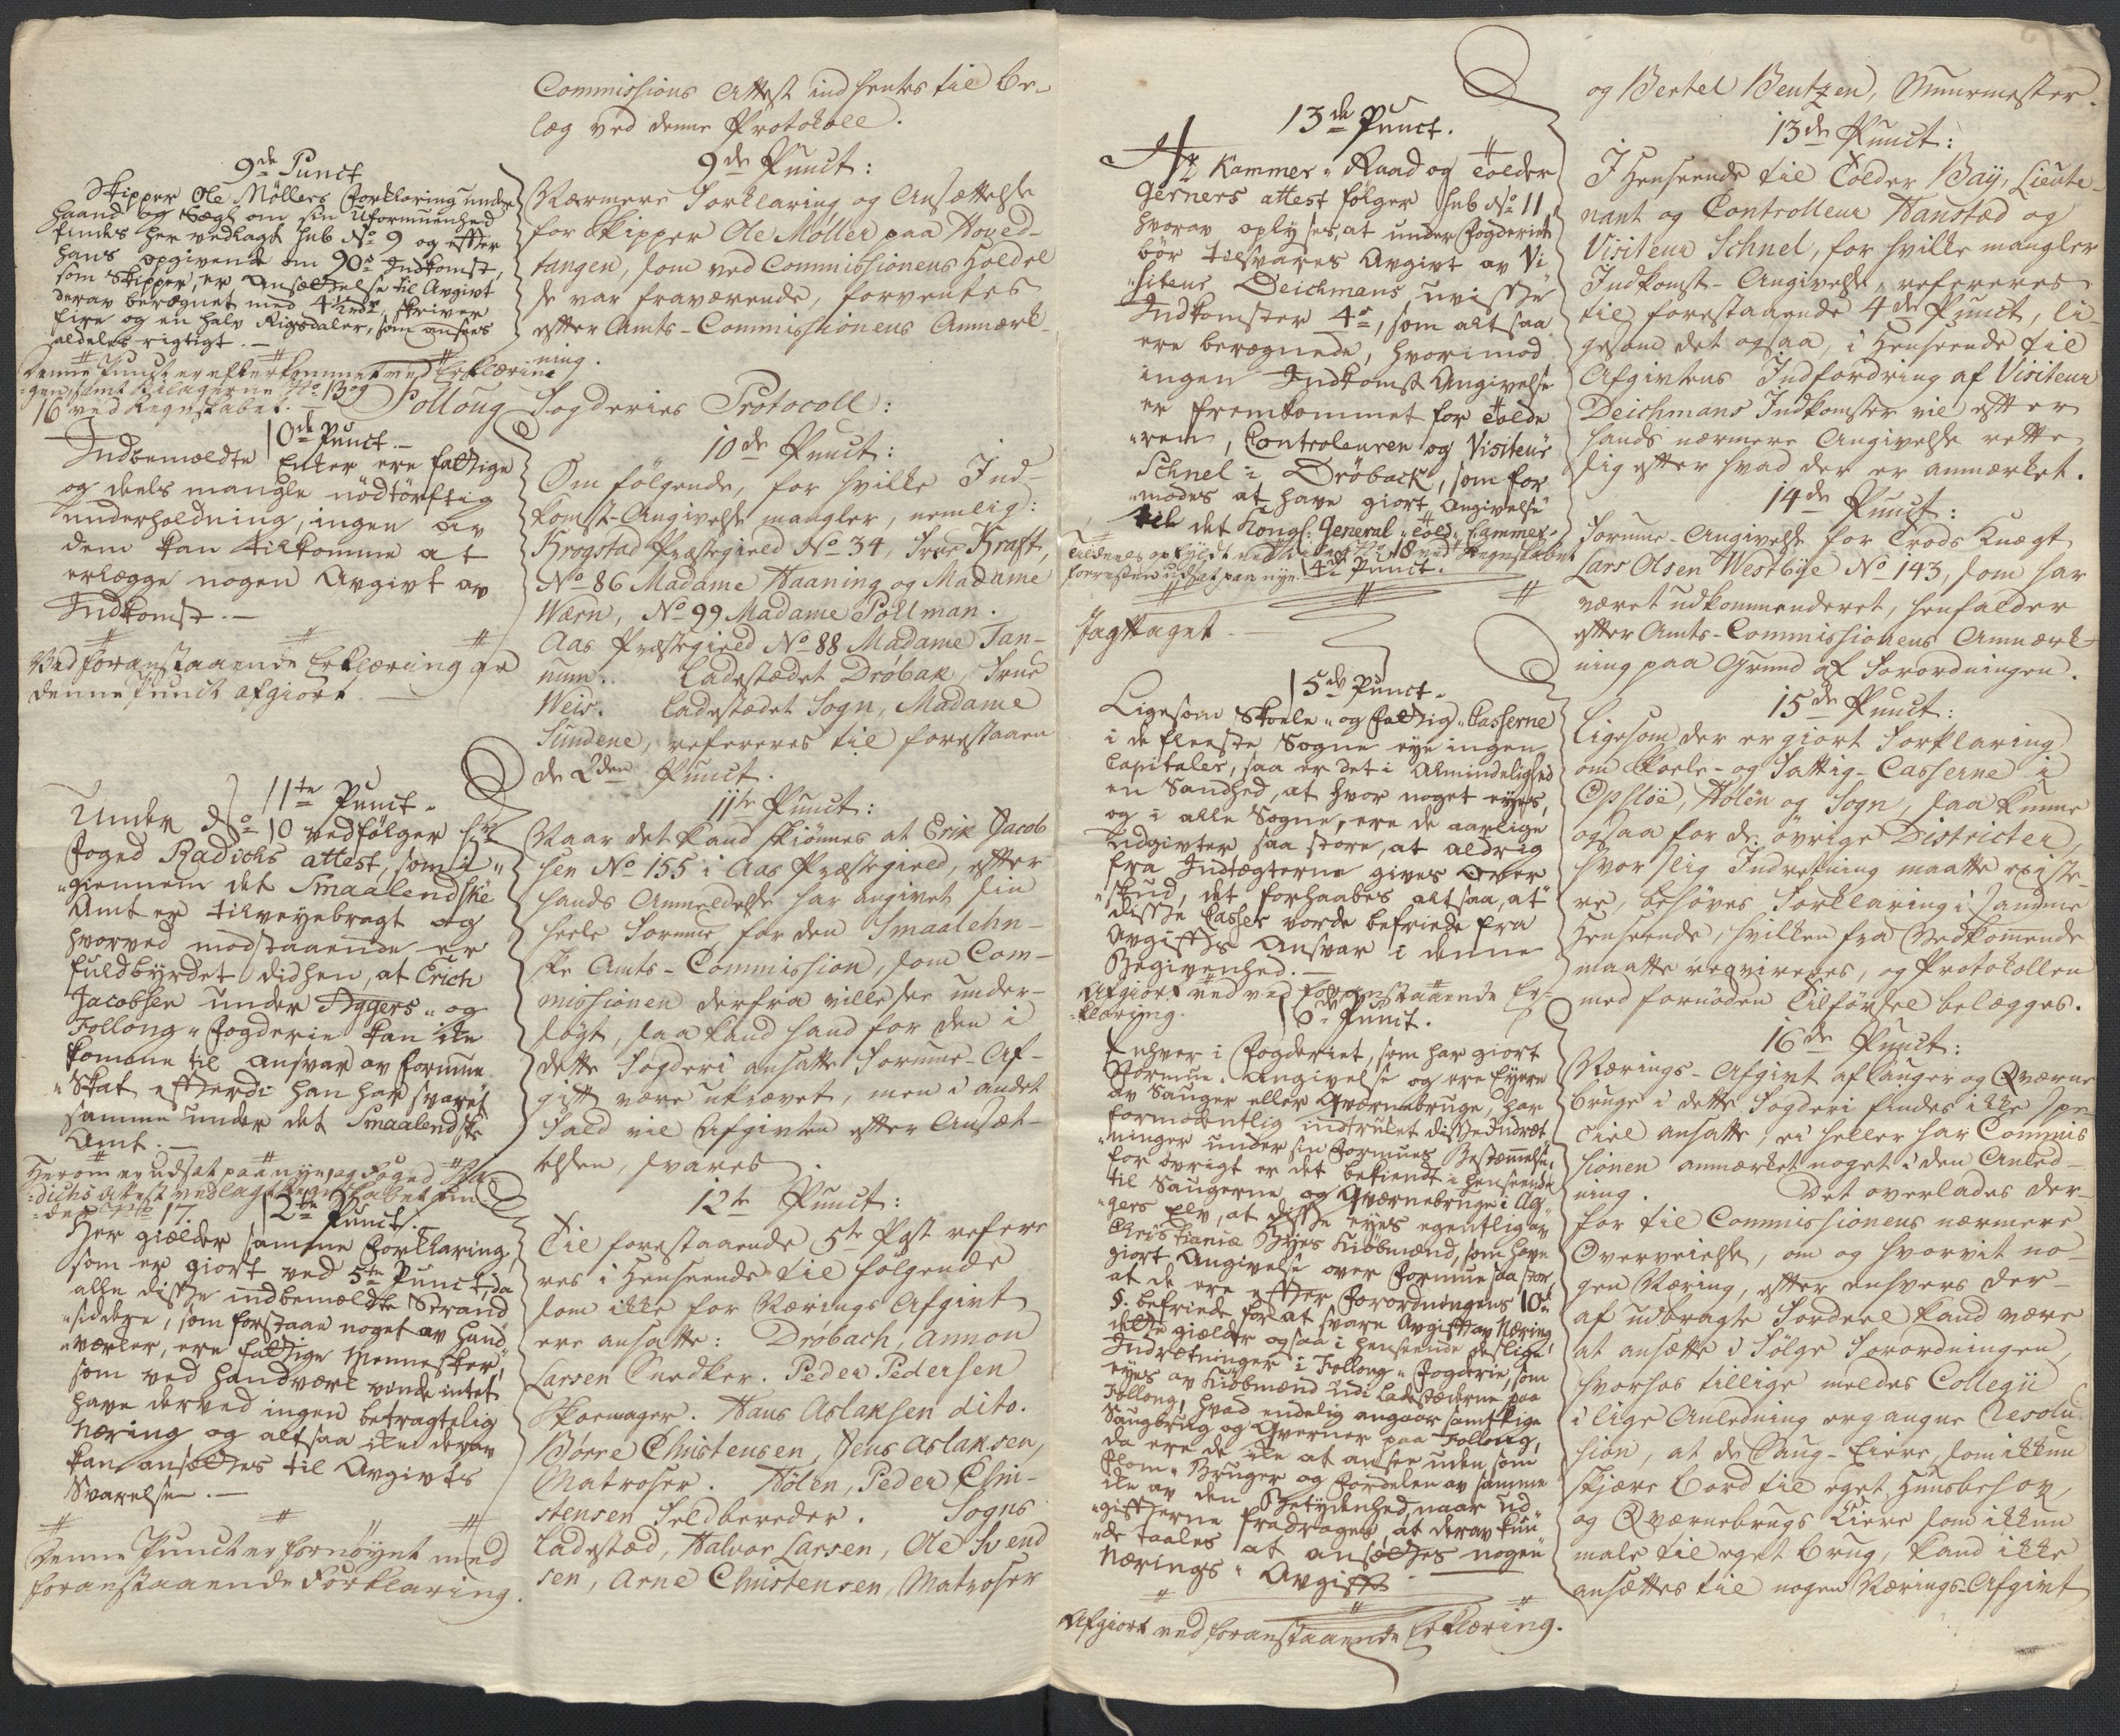 Commissions Attest indhentes til be-
læg ved denne Protokoll.
9de Punct
Skipper Ole Möllers Forklaring under
haand og Segl om sin Uformuenhed
findes her vedlagt sub No 9 og efter
hans opgivende om 90rd Indkomst,
som Skipper, er Ansættelse til Avgivt
derav beregnet med 4½rdr, skriver
fire og en halv Rigsdaler, som ansees
aldeles rigtigt.-
Denne Punct er efterkommet ved Erklærin-
gen, samt Bilagerne No 13 og
16 ved Regnskabet.-
10de Punct.-
Indbemældte Enker ere fattige
og deels mangle nödtörftig
underholdning, ingen av
dem kan tilkomme at
erlægge nogen Avgivt av
Indkomst.-
Ved foranstaaende Erklæring er
denne Punct afgiort.
11te Punct.
Under No 10 vedfölger Hr
Foged Radichs attest, som i-
giennem det Smaalendske
Amt er tilveyebragt og
hvorved modstaaende er
fuldbyrdet didhen, at Erich
Jacobsen under Aggers- og
Follong-Fogderie kan ike
komme til ansvar av formue
Skat efterdi han har svaret
samme under det Smaalendske
Amt.-
Herom er udsat paa nye, og Foged Ra-
dichs Attest vedlagt Regnskabet un-
der No 17.
12te Punct.-
Her gielder samme Forklaring,
som er giort ved 5te Punct, da
alle disse indbemældte Strand
siddere, som forstaae noget av haand
værker, ere fattige Mennesker,
som ved handværk vinde intet
have derved ingen betragtelig
Næring og altsaa ike derav
kan ansættes til Avgivts
Svarelse.-
Denne Punct er fornöyet med
foranstaaende Forklaring.
9de Punct:
Nærmere Forklaring og Ansættelse
for Skipper Ole Møller paa Hoved-
tangen, som ved Commissionens Holdel
se var fraværende, forventes
efter Amts-Commissionens Anmærk-
ning.
Follong Fogderies Protocoll:
10de Punct:
Om følgende, for hvilke Ind-
komst-Angivelse mangler, nemlig:
Krogstad Præstegield No 34, Frue Kraft,
No 86 Madame Haaning og Madame
Wærn, No 99 Madame Pollman.
Aas Præstegield No 88 Madame Tan-
num. Ladestædet Drøbak, Frue
Weis. Ladestædet Sogn, Madame
Sundene, refereres til forestaaen
de 2den Punct.
11te Punct:
Naar det kand skiønnes at Erik Jacob
sen No 155 i Aas Præstegield, efter
hands Anmeldelse har angivet sin
heele Formue for den Smaalehn-
ske Amts-Commission, som Com-
missionen derfra ville see under-
søgt, saa kand hand for den i
dette Fogderi ansatte Formue-Af-
gift være ukrævet, men i andet
Fald vil Afgivten efter Ansæt-
telsen, svares
12te Punct:
Til forestaaende 5te Post refere
res i Henseende til følgende
som ikke for Nærings Afgivt
ere ansatte: Drøbach, Annon
Larsen Snedker. Peder Pedersen
Skoemager. Hans Aslaksen dito.
Børre Christensen, Jens Aslaksen,
Matroser. Hølen, Peder Chri-
stensen Feldbereder. Sogns
Ladestæd, Halvor Larsen, Ole Svend
sen, Arne Christensen, Matroser
13de Punct.
Hr Kammer-Raad og Tolder
Gerners attest fölger sub No 11,
hvorav oplyses, at under Fogderiet
bör tilsvares Avgivt av Vi-
siteur Deichmans uvisse
Indkomster 4rd, som altsaa
ere beregnede, hvorimod
ingen Indkomst Angivelse
er fremkommet for Tolde
ren, Controleuren og Visiteur
Schnel i Dröback, som for
modes at have giort Angivelse
til det Kongl: General Told-Kammer.
foresten udsat paa nye.
14de Punct.
Iagttaget-
15de Punct.
Ligesom Skoele- og Fattig-Casserne
i de fleeste Sogne eye ingen
Capitaler, saa er det i Almindelighed
en Sandhed, at hvor noget eyes,
og i alle Sogne, ere de aarlige
Udgivter saa store, at aldrig
fra Indtægterne gives Over
skud, det forhaabes altsaa, at
disse Casser vorde befriede fra
Avgifts Ansvar i denne
Begivenhed.-
Afgiort ved ved foranstaaende Er-
klæring.
16de Punct.
Enhver i Fogderiet, som har giort
Formue-Angivelse og ere Eyere
av Sauger eller Qværnebruge, har
formodentlig indtrukket disse Indret-
ninger under sin Formues Bestemmelse,
for övrigt er det bekiendt i henseende
til Saugerne og Qværnebruge i Ag-
gers Elv, at disse eyes egentlig av
Christianiæ Byes Kiöbmænd, som have
giort Angivelse over Formue saa stor,
at de ere efter Forordningens 10de
§. befriede for at svare Avgift av Næring
dette gielder ogsaa i henseende deslige
Indretninger i Follong-Fogderie, som
eyes av Kiöbmænd udi Ladestæderne paa
Follong, hvad endelig angaar samtlige
Saugbrug og Qverner paa Follong,
da ere de ike at ansee uden som
Flom-Bruger og Fordelen av samme
ike av den Betydenhed, naar Ud
gifterne fradrages, at derav kun
de taales at ansættes nogen
Nærings-Avgift
Afgiort ved foranstaaende Erklæring.
og Bertel Bentzen, Muurmester.
13de Punct:
I Henseende til Tolder Bay, Lieute-
nant og Controlleur Hanstæd og
Visiteur Schnel, for hvilke mangler
Indkomst-Angivelse, refereres
til forestaaende 4de Punct, li-
gesom det ogsaa, i Henseende til
Afgivtens Indfordring af Visiteur
Deichmans Indkomster vil efter
hands nærmere Angivelse rette
sig efter hvad der er anmærket.
14de Punct:
Formue-Angivelse for Trods Knægt
Lars Olsen Westbye No 143, som har
været udkommenderet, henfalder
efter Amts-Commissionens Anmærk-
ning paa Grund af Forordningen.
15de Punct:
Ligesom der er giort Forklaring
om Skoele- og Fattig-Casserne i
Opsloe, Hølen og Sogn, saa kunne
ogsaa for de øvrige Districter,
hvor slig Indretning maatte existe-
re, behøves Forklaring i samme
Henseende, hvilken fra Vedkomende
maatte reqvireres, og Protokollen
med fornøden Tilførsel belægges.
16de Punct:
Nærings-Afgivt af Sauger og Qværne
bruge i dette Fogderi findes ikke spe-
ciel ansatte, ei heller har Commis
sionen anmærket noget i den Anled-
ning. Det overlades der-
for til Commissionens nærmere
Overveielse, om og hvorvit no-
gen Næring, efter enhvers der-
af udbragte Fordeel kand være
at ansætte i Følge Forordningen,
hvorhos tillige meldes Collegii
i lige Anledning ergangne Resolu-
sion, at de Saug-Eiere, som ikkun
skjære Bord til eget Huusbehov,
og Qværnebrugs Eiere som ikkun
male til eget Brug, kand ikke
ansættes til nogen Nærings-Afgivt